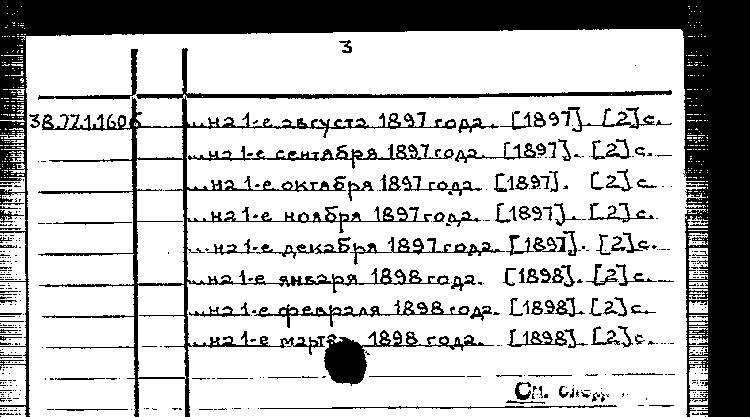 3
38.77.1.160б ...на 1-е августа 1897 года. [1897]. [2] с.
...на 1-е сентября 1897 года. [1897]. [2] с.
...на 1-е октября 1897 года. [1897]. [2] с.
...на 1-е ноября 1897 года. [1897]. [2] с.
...на 1-е декабря 1897 года. [1897]. [2] с.
...на 1-е января 1898 года. [1898]. [2] с.
...на 1-е февраля 1898 года. [1898]. [2] с.
...на 1-е марта 1898 года. [1898]. [2] с.
См. след.